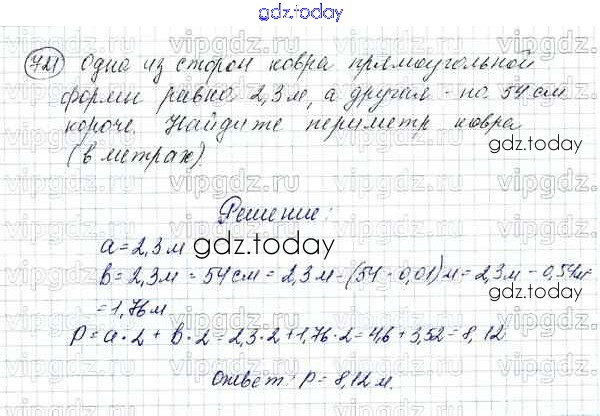 gdz.today
721 Одна из сторон ковра прямоугольной
формы равна 2,3 м, а другая - на 54 см
короче. Найдите периметр ковра
(в метрах)
gdz.today
Решение:
a = 2,3 м
gdz.today
b = 2,3 м = 54 см = 2,3 м - (54 · 0,01) м = 2,3 м - 0,54 м
= 1,76 м
gdz.today
P = a · 2 + b · 2 = 2,3 · 2 + 1,76 · 2 = 4,6 + 3,52 = 8,12
Ответ: P = 8,12 м.